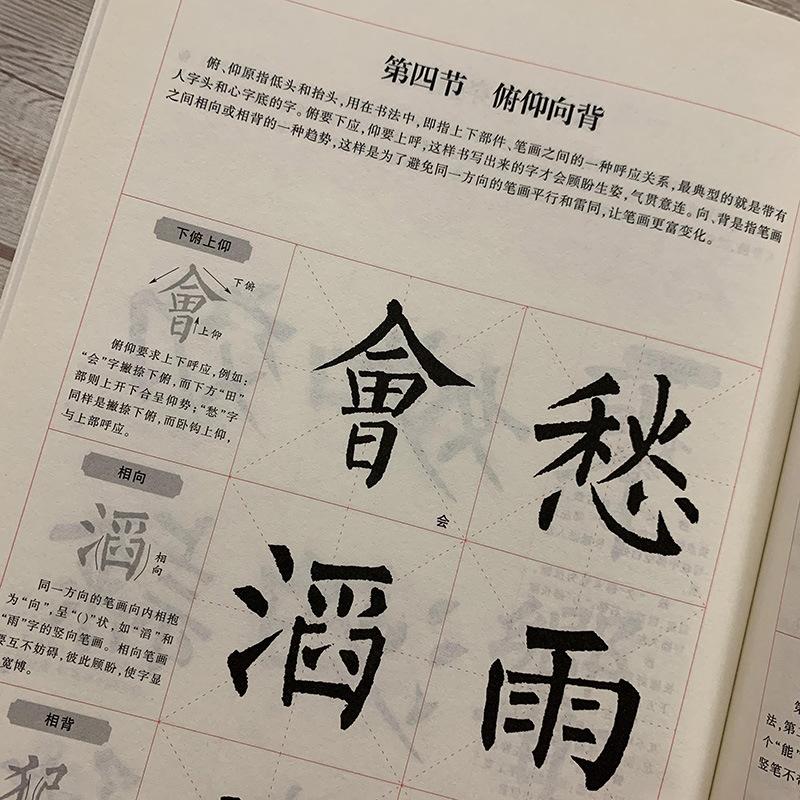 第四节 俯仰向背
俯、仰原指低头和抬头，用在书法中，即指上下部件、笔画之间的一种呼应关系，最典型的就是带有
人字头和心字底的字。俯要下应，仰要上呼，这样书写出来的字才会顾盼生姿，气贯意连。向、背是指笔画
之间相向或相背的一种趋势，这样是为了避免同一方向的笔画平行和雷同，让笔画更富变化。
下俯上仰
會
下俯
上仰
俯仰要求上下呼应，例如：
“会”字撇捺下俯，而下方“田”
部则上开下合呈仰势；“愁”字
同样是撇捺下俯，而卧钩上仰，
与上部呼应。
會
会
愁
相向
滔
相
向
同一方向的笔画向内相抱
为“向”，呈“()”状，如“滔”和
“雨”字的竖向笔画。相向笔画
要互不妨碍，彼此顾盼，使字显
宽博。
滔
雨
相背
犯
法，第
个“能”
竖笔不